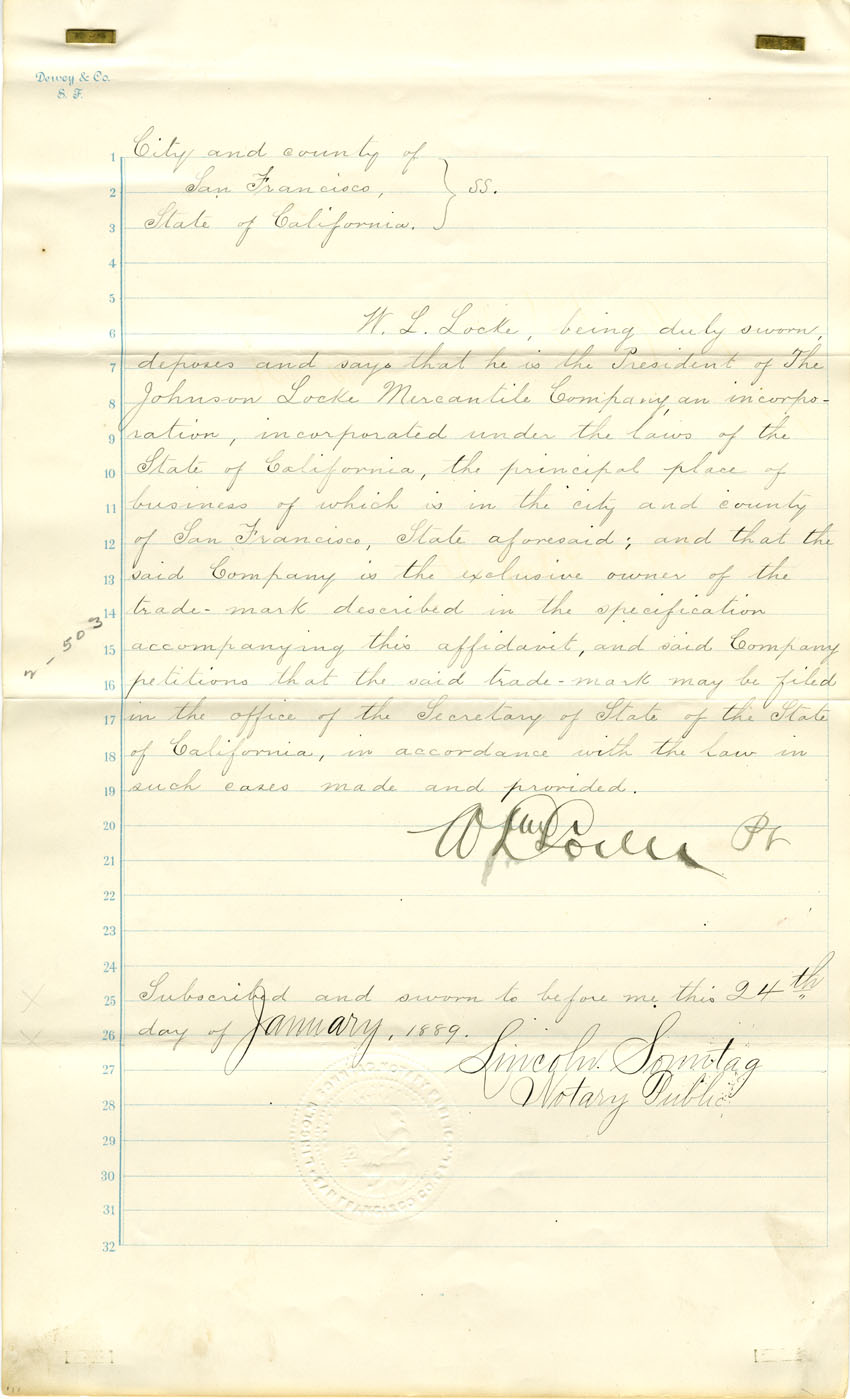 Dewey & Co.
S. F.
1 City and county of
2 San Francisco, } ss.
3 State of California.
4
5
6 W. L. Locke, being duly sworn,
7 deposes and says that he is the President of The
8 Johnson Locke Mercantile Company, an incorpo-
9 ration, incorporated under the laws of the
10 State of California, the principal place of
11 business of which is in the city and county
12 of San Francisco, State aforesaid; and that the
13 said Company is the exclusive owner of the
14 trade-mark described in the specification
15 accompanying this affidavit, and said Company
16 petitions that the said trade-mark may be filed
17 in the office of the Secretary of State of the State
18 of California, in accordance with the law in
19 such cases made and provided.
20 W L Locke Pt
21
22
23
24
25 Subscribed and sworn to before me this 24th
26 day of January, 1889.
27 Lincoln Sonntag
28 Notary Public
29
30
31
32
503